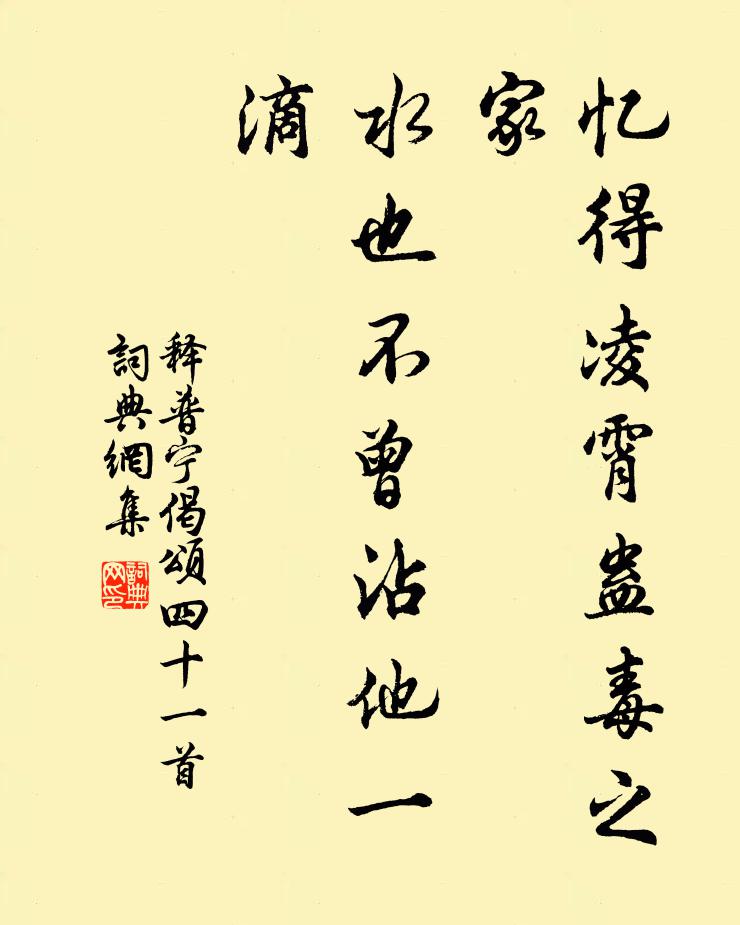 忆得凌霄蛊毒之
家
水也不曾沾他一
滴
释普宁偈頌四十一首
詞典網集
詞典
网印